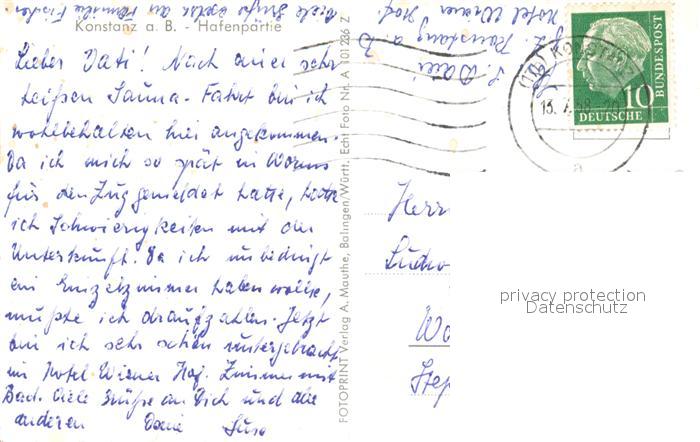 Viele Grüße
Konstanz a. B. - Hafenpartie
Lieber Vati! Nach einer sehr
heißen Sauna-Fahrt bin ich
wohlbehalten hier angekommen.
Da ich mich so spät in Worms
für den Zug gemeldet hatte, hatte
ich Schwierigkeiten mit der
Unterkunft. Da ich unbedingt
ein Einzelzimmer haben wollte,
mußte ich draufzahlen. Jetzt
bin ich sehr schön untergebracht
im Hotel Wiener Hof. Zimmer mit
Bad. Viele Grüße an Dich und alle
anderen Deine Suse
FOTOPRINT Verlag A. Mauthe, Balingen/Württ. Echt Foto Nr. A 101236 Z
z. Z. Konstanz a. B.
Hotel Wiener Hof
KONSTANZ
13. 7. 58 - 20
a
10
DEUTSCHE
BUNDESPOST
Herrn
Ludw
Wo
privacy protection
Datenschutz